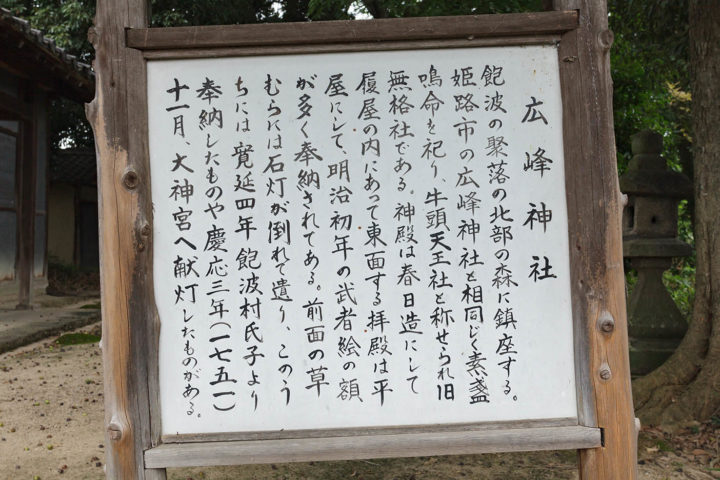 広峰神社
飽波の聚落の北部の森に鎮座する。
姫路市の広峰神社と相同じく素盞
鳴命を祀り、牛頭天王社と称せられ旧
無格社である。神殿は春日造にして
履屋の内にあって東面する拝殿は平
屋にして、明治初年の武者絵の額
が多く奉納されてある。前面の草
むらには石灯が倒れて遺り、このう
ちには寛延四年飽波村氏子より
奉納したものや慶応三年(一七五一)
十一月、大神宮へ献灯したものがある。